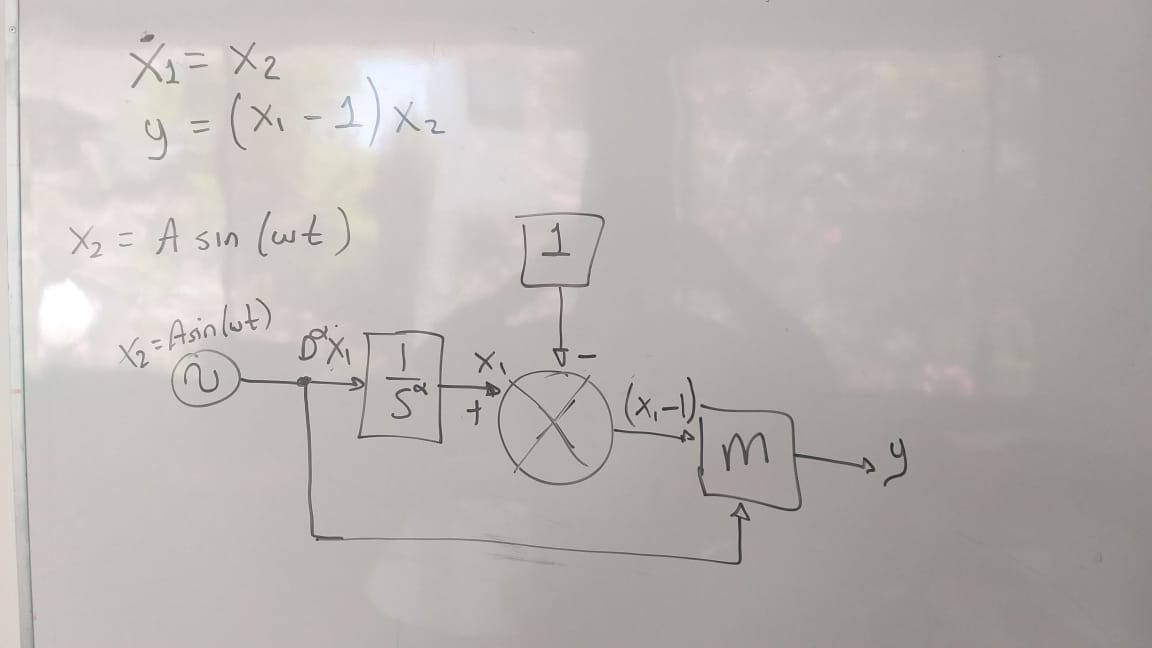 ẋ₁ = x₂
y = (x₁ - 1) x₂
x₂ = A sin (ωt)
1
x₂ = A sin(ωt)
D^α x₁
1/S^α
x₁
+
-
(x₁-1)
m
y